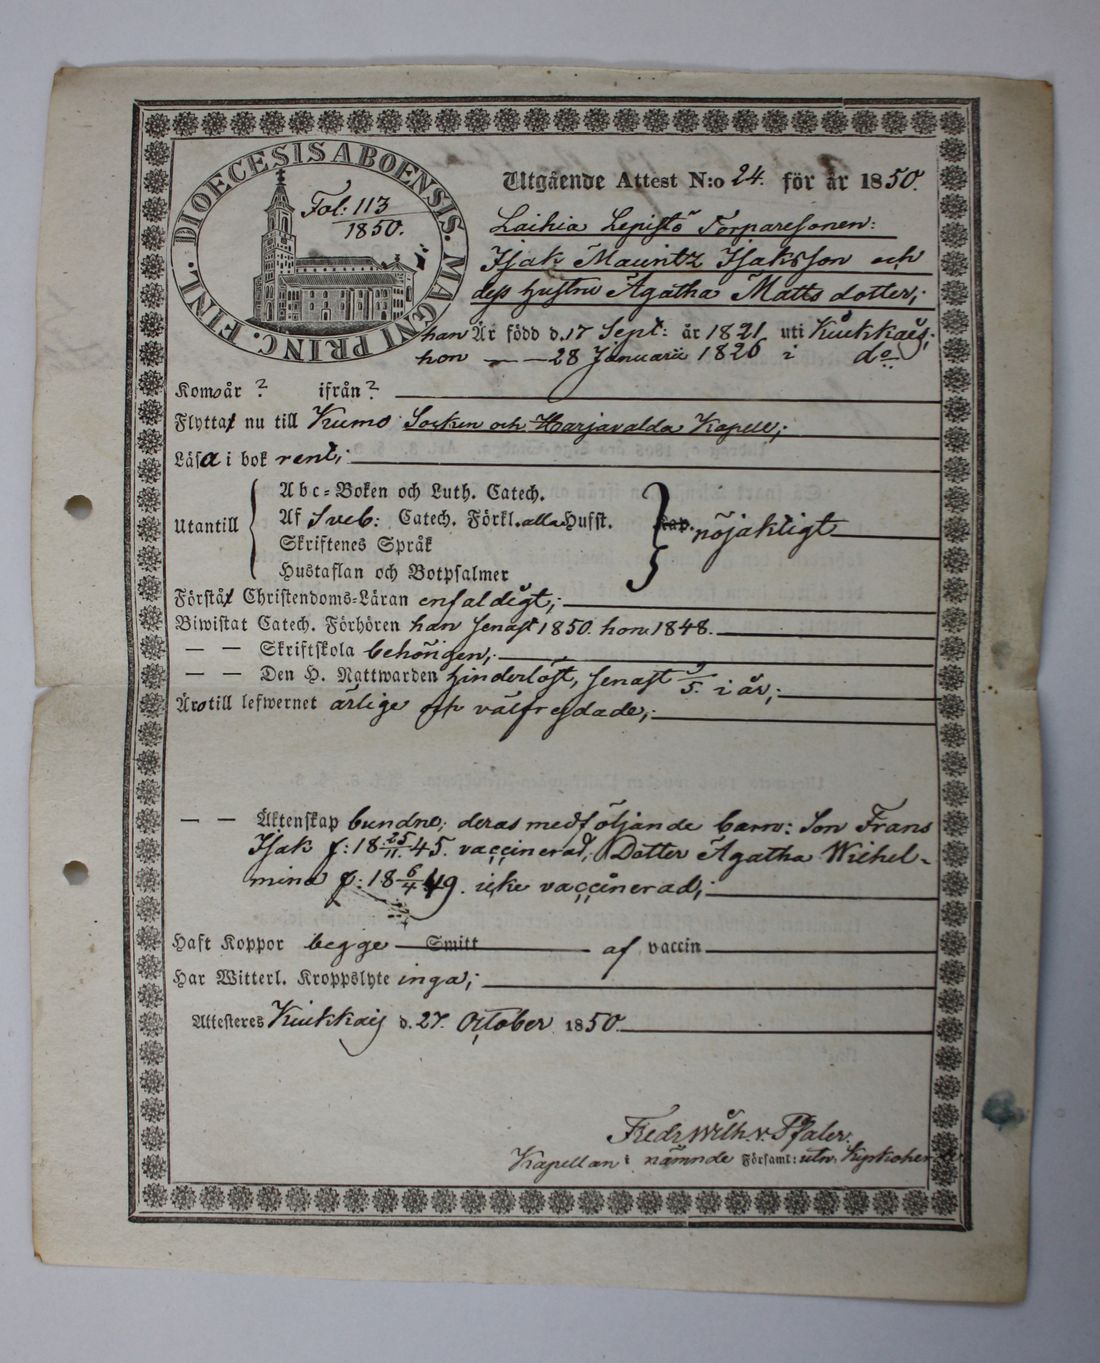 DIOECESIS ABOENSIS. MAGNI PRINC. FINL.
Fol: 113
1850.
Utgående Attest N:o 24. för år 1850.
Laihia Lepistö Torparesonen:
Isak Mauritz Isaksson och
dess hustru Agatha Matts dotter;
han Är född d. 17 Sept: år 1821 uti Kiukkais;
hon — — 28 Januarii 1826 i do
Kom år ? ifrån ?
Flytta nu till Kumo Socken och Harjavalda Kapell;
Läsa i bok rent;
Utantill
Abc-Boken och Luth. Catech.
Af Sveb: Catech. Förkl. alla Hufst.
Skriftenes Språk
Hustaflan och Botpsalmer
nöjaktigt
Förstå Christendoms-Läran enfaldigt;
Biwistat Catech. Förhören han senast 1850. hon 1848.
— — Skriftskola behörigen;
— — Den H. Nattwarden hinderlöst, senast 9/5 i år;
Äro till lefwernet ärlige och välfrejdade;
— — Äktenskap bundne; deras medföljande barn: Son Frans
Isak f: 18 25/11 45. vaccinerad; Dotter Agatha Wilhel-
mina f: 18 6/4 49. icke vaccinerad;
Haft Koppor begge Smitt af vaccin
Har Witterl. Kroppslyte inga;
Attesteres Kiukkais d. 27. October 1850
Fredr. Wilh. v. Pfaler.
Kapellan i nämnde Församl: